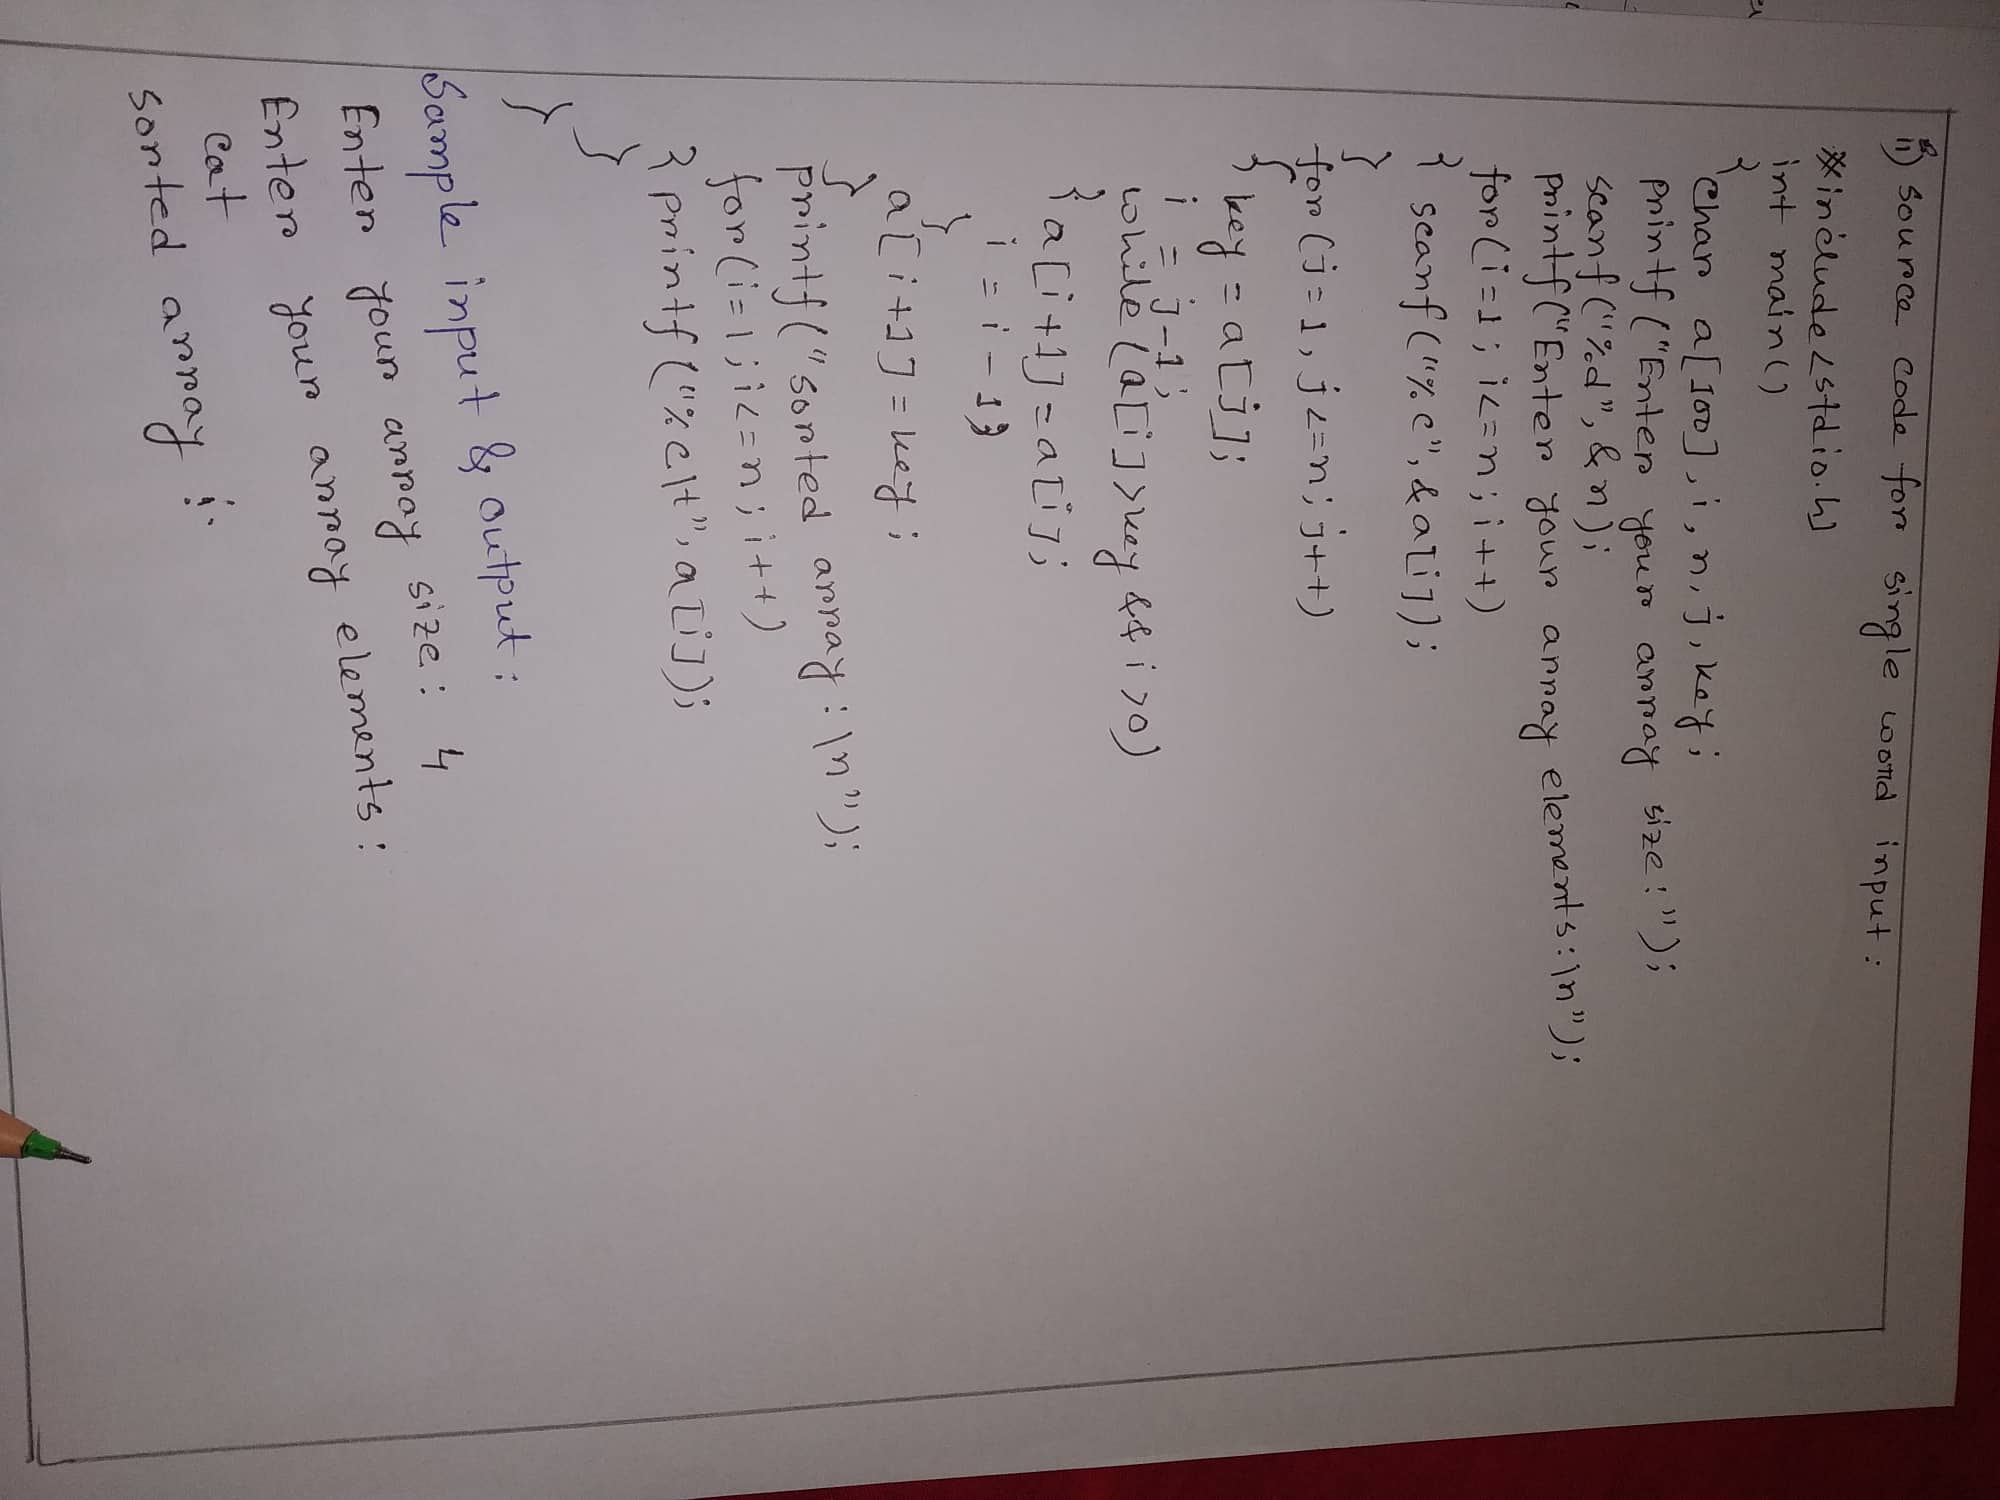 ii) source code for single word input :
#include<stdio.h>
int main()
{
char a[100], i, n, j, key;
printf("Enter your array size:");
scanf("%d", &n);
printf("Enter your array elements:\n");
for(i=1; i<=n; i++)
{
scanf("%c", &a[i]);
}
for(j=1, j<=n; j++)
{
key = a[j];
i = j-1;
while(a[i]>key && i>0)
{
a[i+1]=a[i];
i = i-1;
}
a[i+1]=key;
}
printf("sorted array:\n");
for(i=1; i<=n; i++)
{
printf("%c\t", a[i]);
}
}
Sample input & output:
Enter your array size: 4
Enter your array elements:
cat
sorted array :